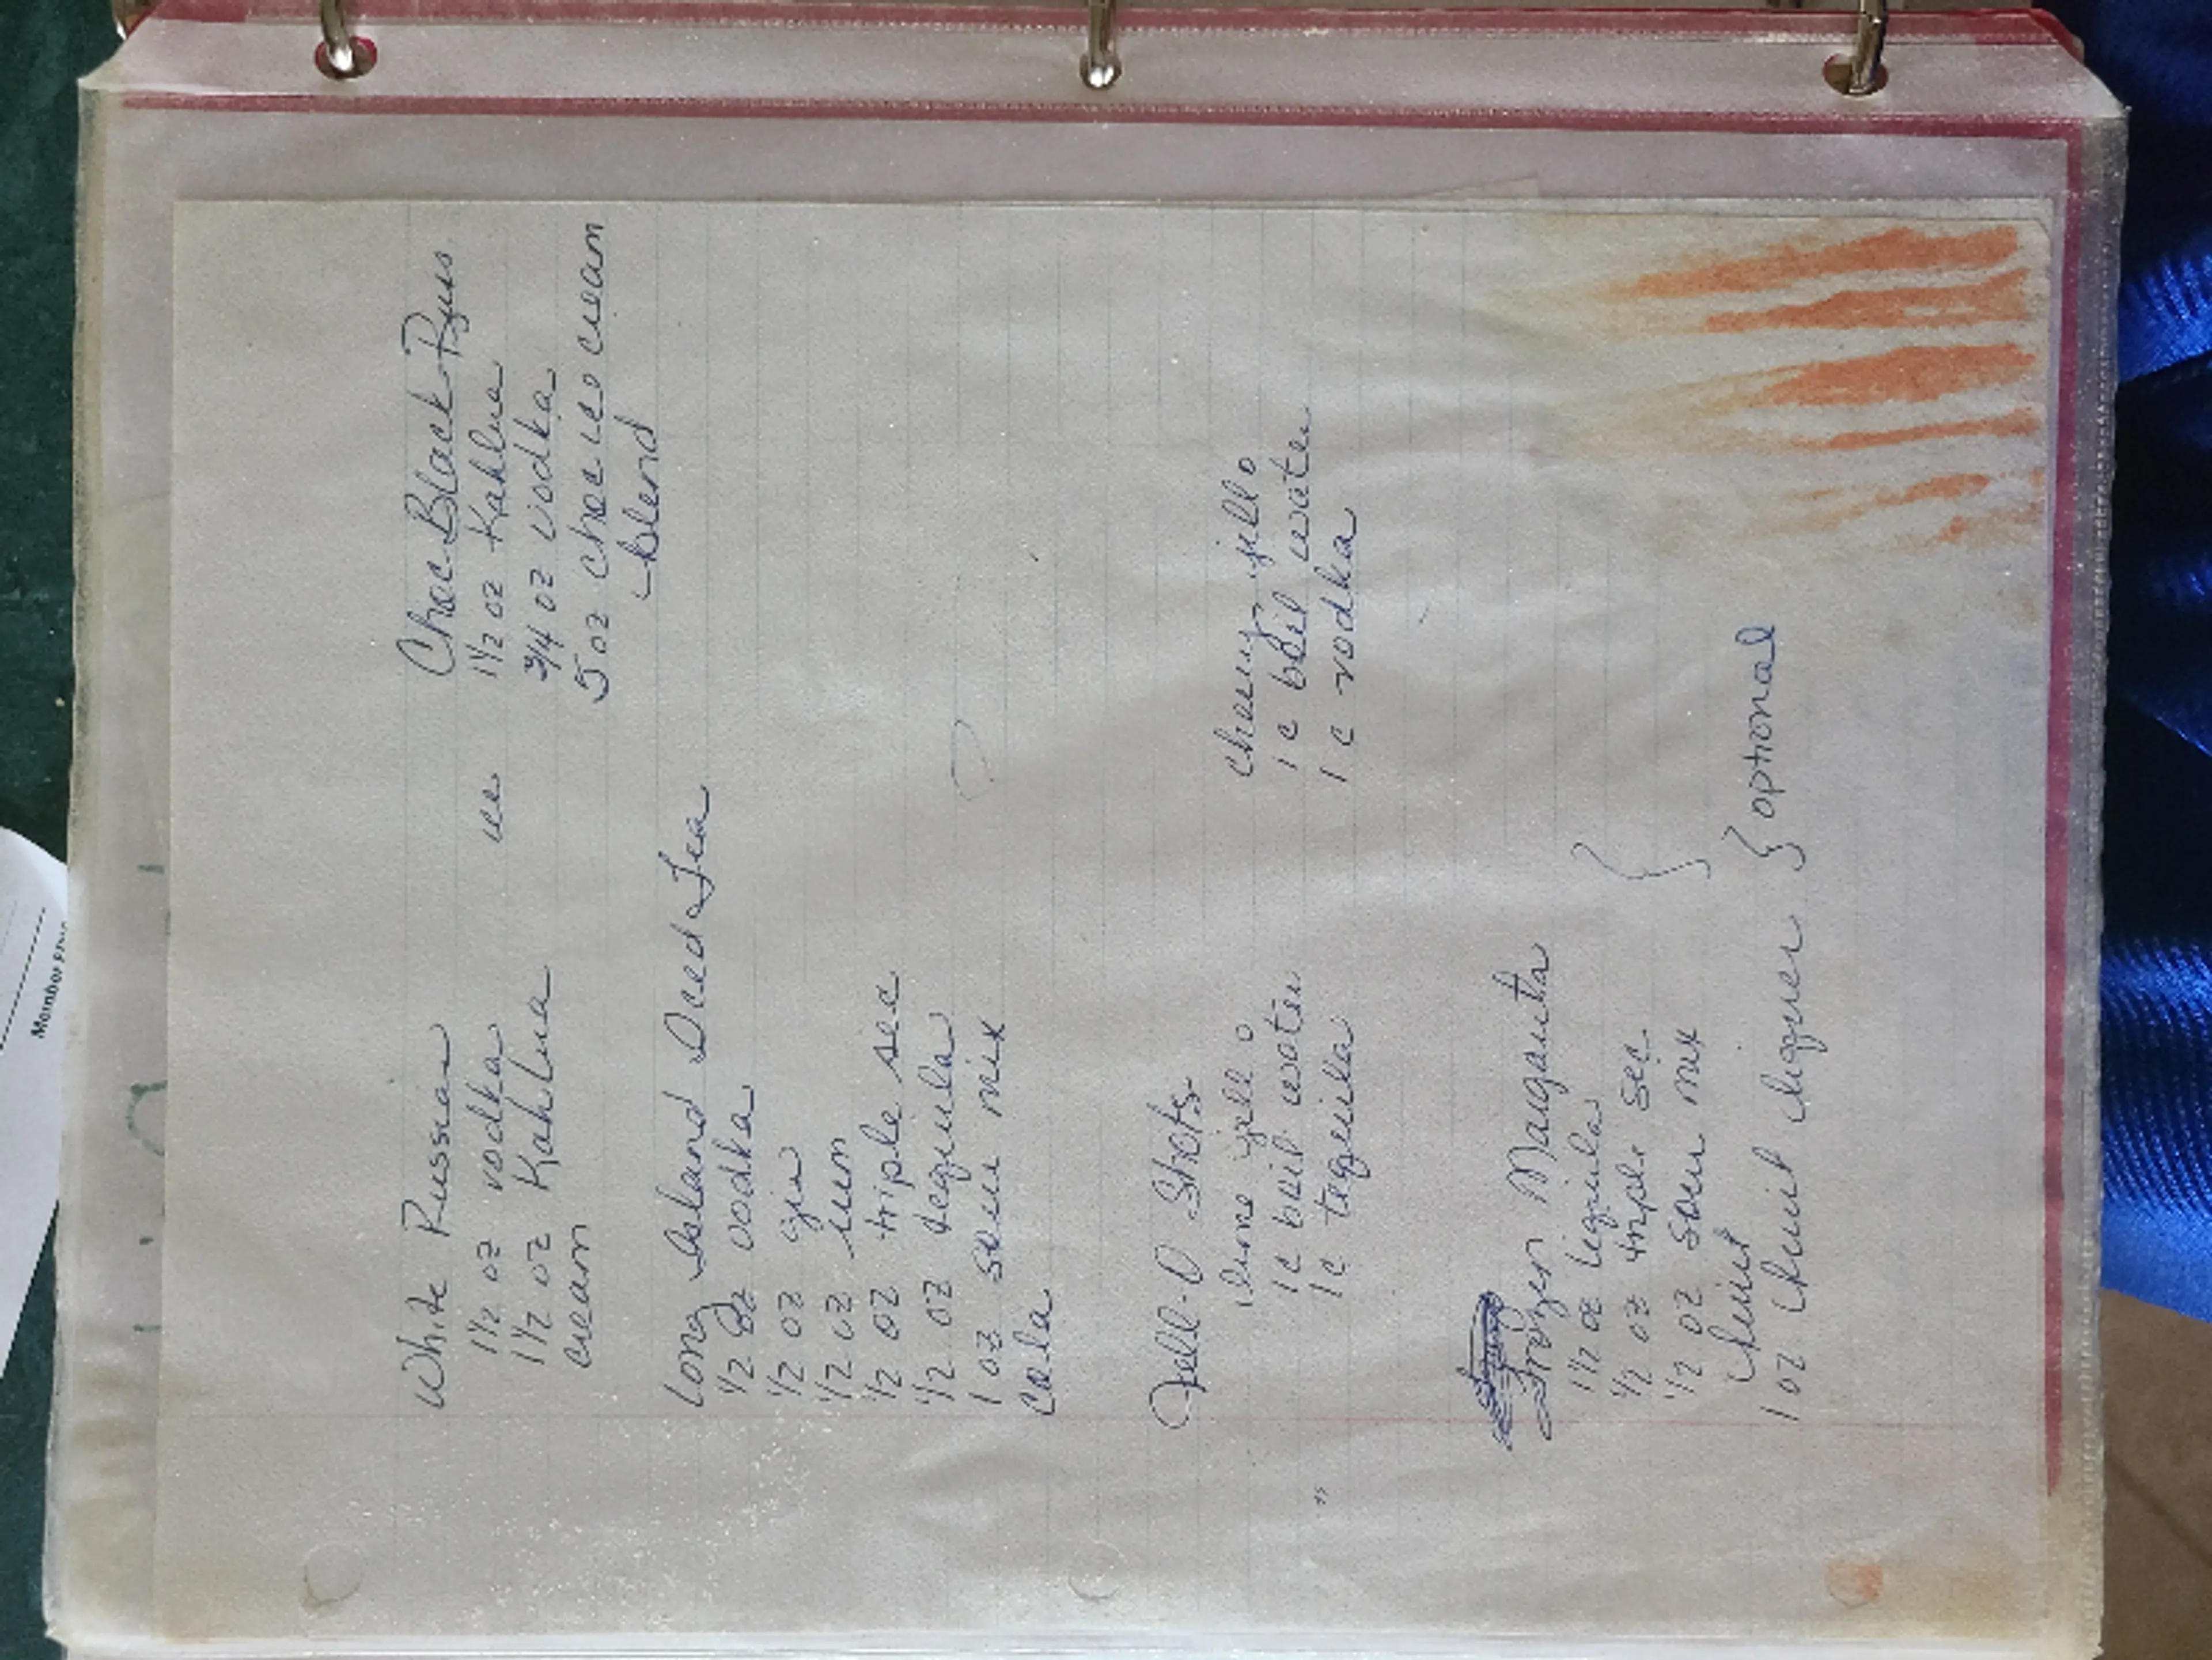 White Russian
1 1/2 oz vodka
1 1/2 oz Kahlua
cream
ice
Choc Black Russ
1 1/2 oz Kahlua
3/4 oz vodka
5 oz choc ice cream
blend
Long Island Iced Tea
1/2 oz vodka
1/2 oz gin
1/2 oz rum
1/2 oz triple sec
1/2 oz tequila
1 oz sour mix
Cola
Jell-O Shots
lime jello
1 c boil water
1 c tequila
cherry jello
1 c boil water
1 c vodka
Frozen Margarita
1 1/2 oz tequila
1/2 oz triple sec
1/2 oz sour mix
fruit
1 oz fruit liquer } optional
Member